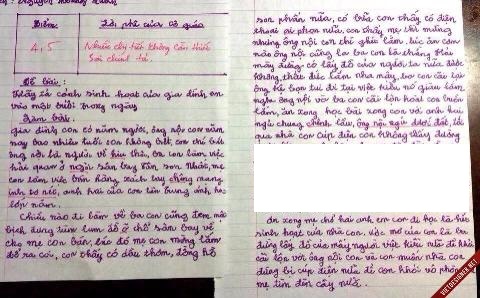 Điểm:
Lời phê của cô giáo
4,5
Nhiều chi tiết không cần thiết
Sai chính tả.
Đề bài:
Hãy tả cảnh sinh hoạt của gia đình em
vào một buổi trong ngày
Làm bài.
gia đình con có năm người, ông nội con năm
nay bao nhiêu tuổi con không biết, con chỉ biết
ông nội là người về hưu thôi, ba con làm việc
hải quan ở ngoài sân bay Tân Sơn Nhất, mẹ
con làm việc bán hàng xách tay chồng mang
anh hai của con tên Trung
lớp năm.
Chiều nào đi làm về ba con cũng đem một
bịch đựng tùm lum đồ ở chỗ sân bay về
cho mẹ con bán, lúc đó mẹ con mừng lắm
đổ ra coi, con thấy có dầu thơm, đồng hồ
son phấn nữa, có bữa con thấy có điện
thoại ai phon nữa, con thấy mẹ thì mừng
nhưng ông nội con thì giữ lắm, lúc ăn cơm
nào ông nội cũng la ba con là thằng Hải
mày đừng có lấy đồ của người ta nữa được
không, thất đức lắm nha mày, ba con cãi lại
ông là bọn tui đi tại việt kiều nó giàu lắm
nghe ông nội với ba con cãi lộn hoài con buồn
lắm, ăn xong học bài xong con với anh hai
ngủ chung chỉnh lầu, ông nội ngủ dưới đất, tối
qua nhà con cúp điện con không thấy đường
ăn xong mẹ chở hai anh em con đi học là hết
sinh hoạt của nhà con, ước mơ của con là ba
đừng lấy đồ của mấy người việt kiều nữa để khỏi
cãi lộn với ông nội con và con muốn nhà con
đừng bị cúp điện nữa để con khỏi vô phòng
mẹ tìm đèn cầy nữa.
VIETDESIGNER.NET